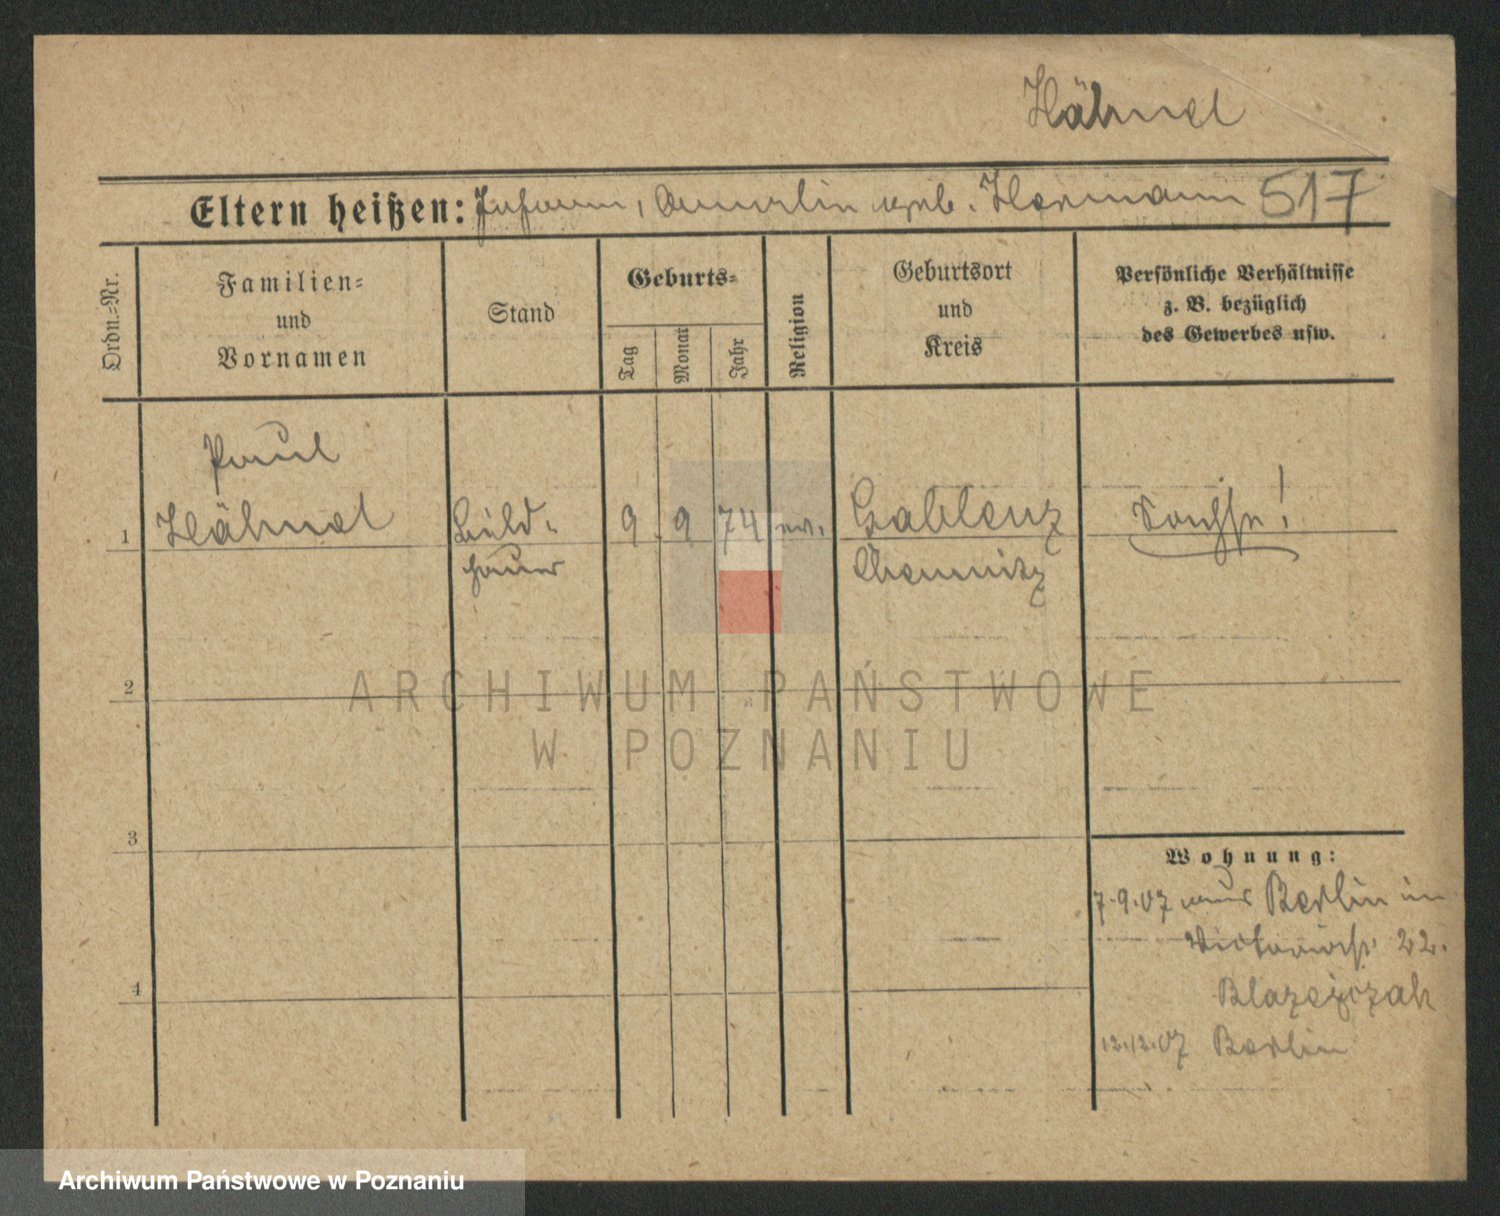 Hähnel
Eltern heißen: Johann, Amalin geb. Hermann 517
Ordn.=Nr.
Familien=
und
Vornamen
Stand
Geburts=
Tag
Monat
Jahr
Religion
Geburtsort
und
Kreis
Persönliche Verhältnisse
z. B. bezüglich
des Gewerbes usw.
Paul
1 Hähnel Bild- 9 9 74 ev. Gablenz Sachse!
hauer Chemnitz
2
3
4
Wohnung:
7.9.07 aus Berlin in
Victoriastr. 22.
Blazejczak
12.12.07 Berlin
ARCHIWUM PAŃSTWOWE
W POZNANIU
Archiwum Państwowe w Poznaniu